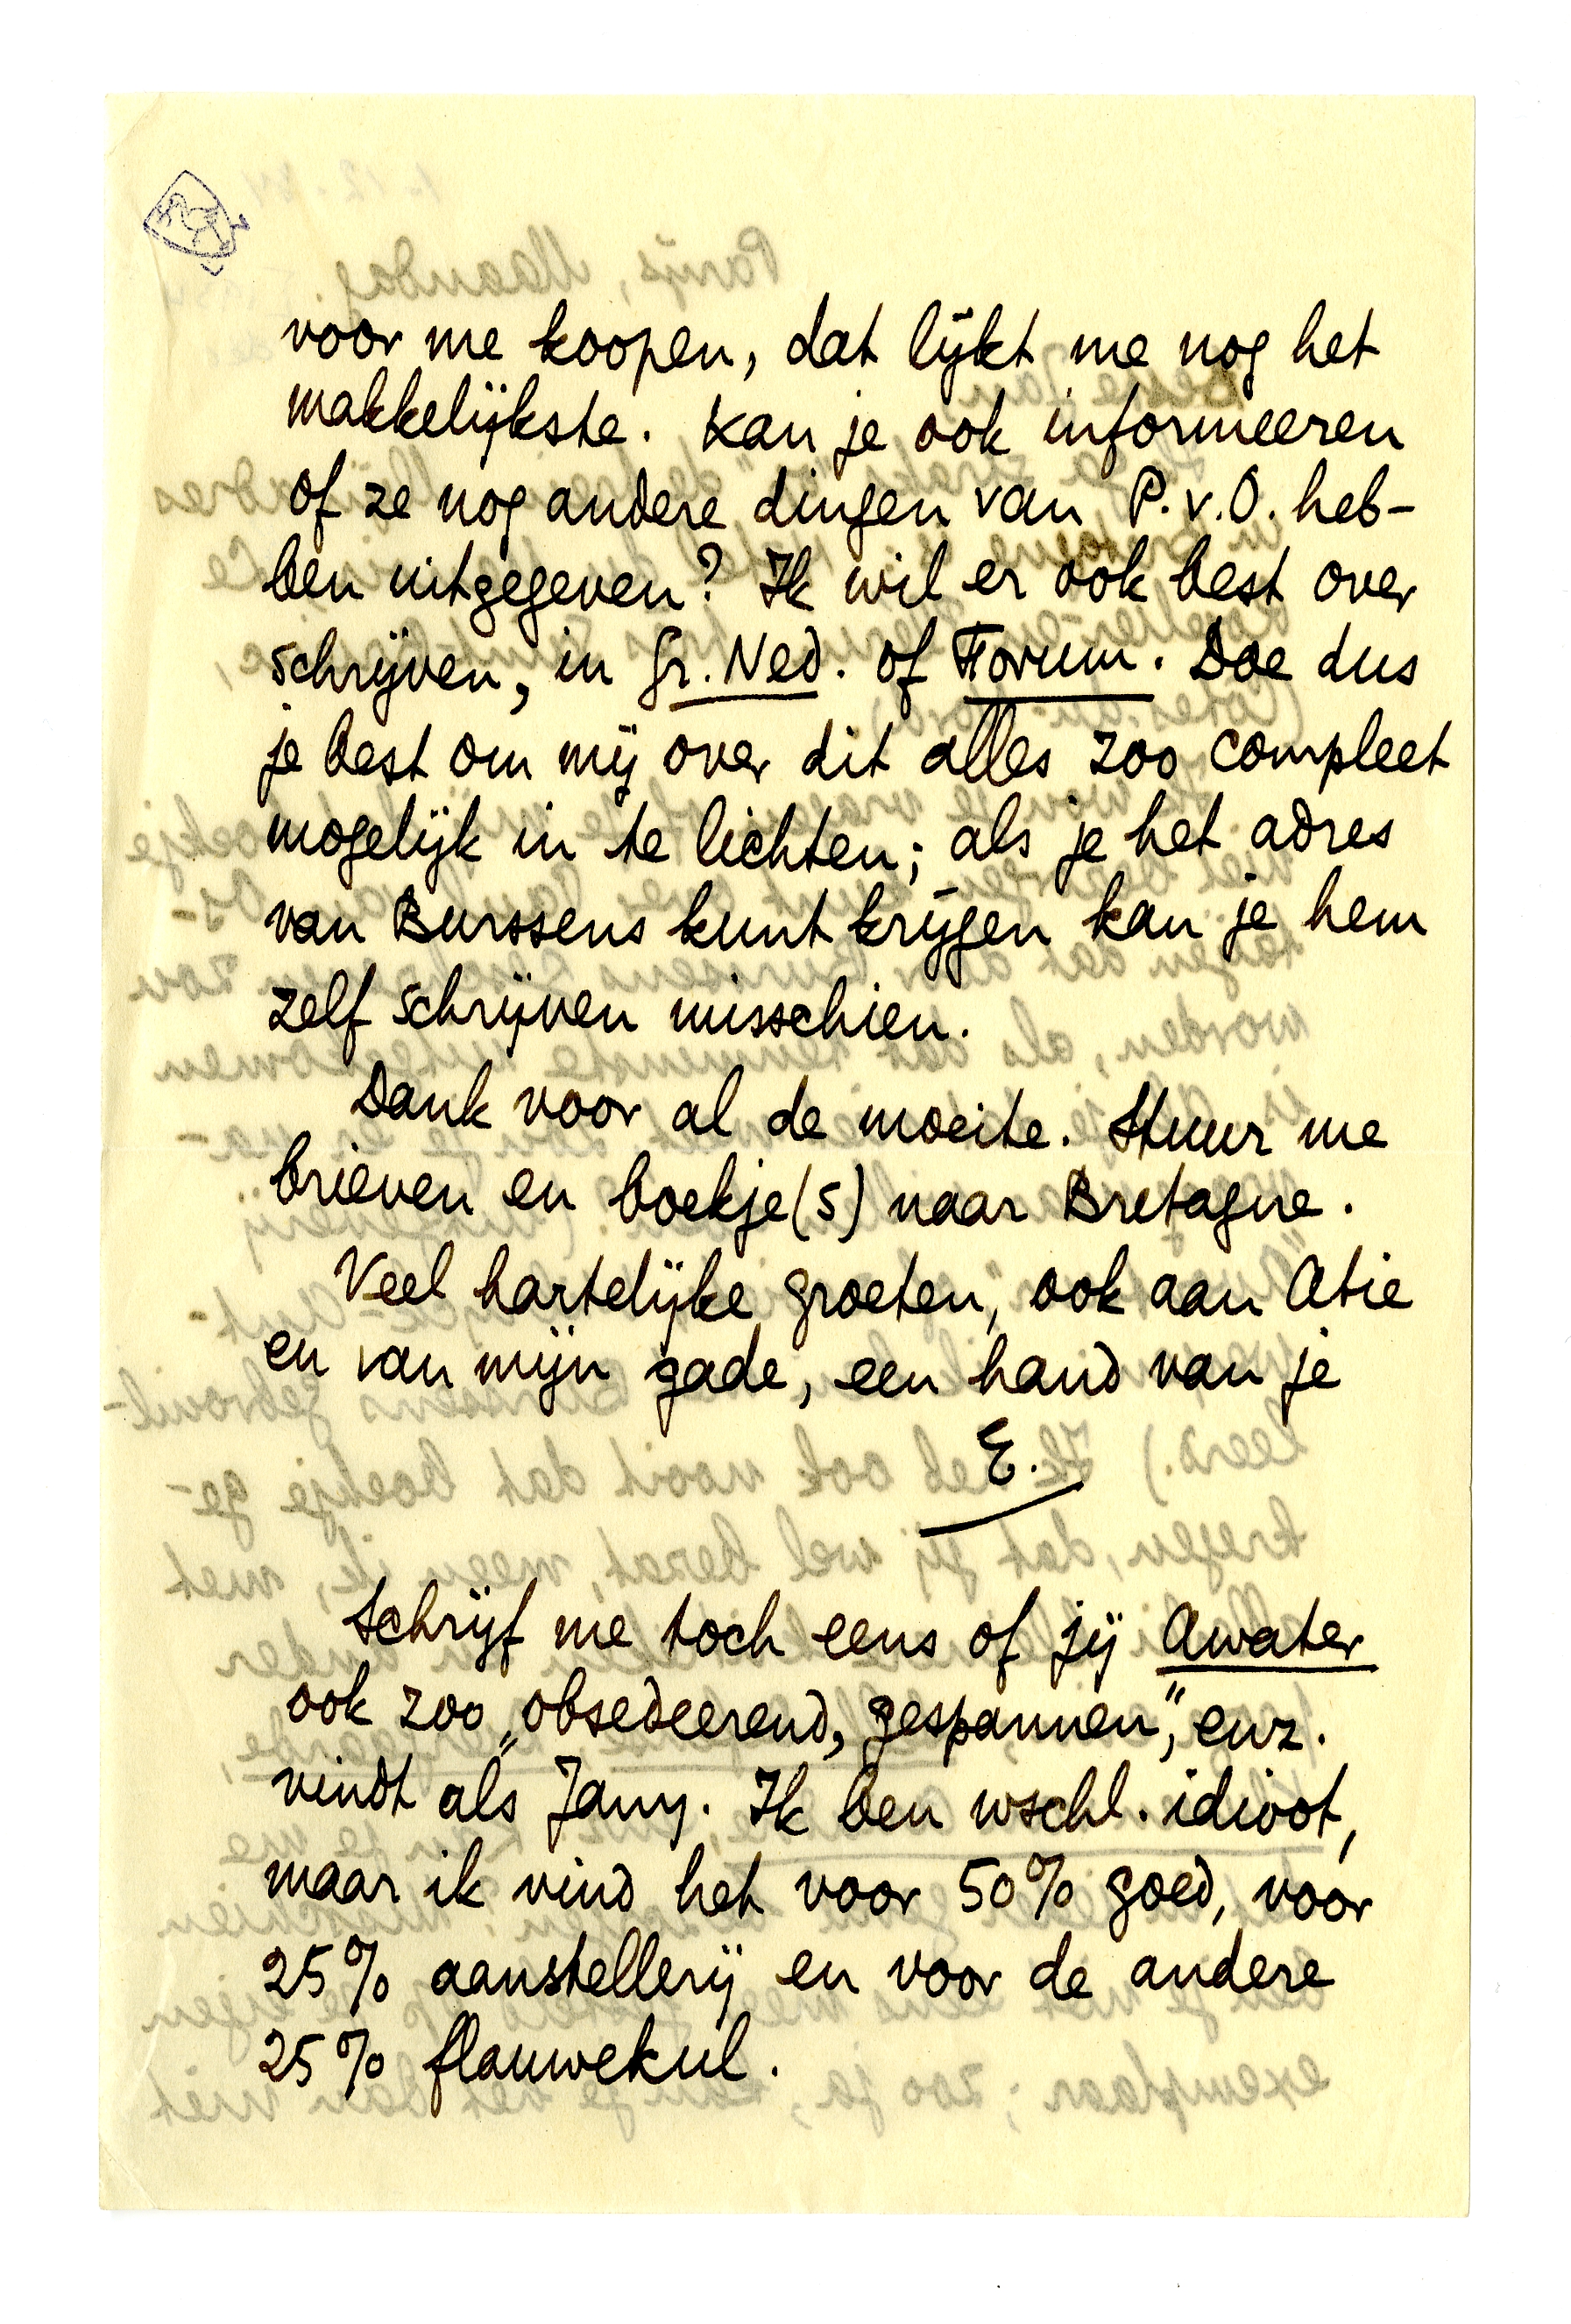 voor me koopen, dat lijkt me nog het
makkelijkste. Kan je ook informeeren
of ze nog andere dingen van P.v.O. heb-
ben uitgegeven? Ik wil er ook best over
schrijven, in Gr. Ned. of Forum. Doe dus
je best om mij over dit alles zoo compleet
mogelijk in te lichten; als je het adres
van Burssens kunt krijgen kan je hem
zelf schrijven misschien.
Dank voor al de moeite. Stuur me
brieven en boekje(s) naar Bretagne.
Veel hartelijke groeten, ook aan Atie
en van mijn gade, een hand van je
E.
Schrijf me toch eens of jij Awater
ook zoo „obsedeerend, gespannen”, enz.
vindt als Jany. Ik ben wschl. idioot,
maar ik vind het voor 50% goed, voor
25% aanstellerij en voor de andere
25% flauwekul.